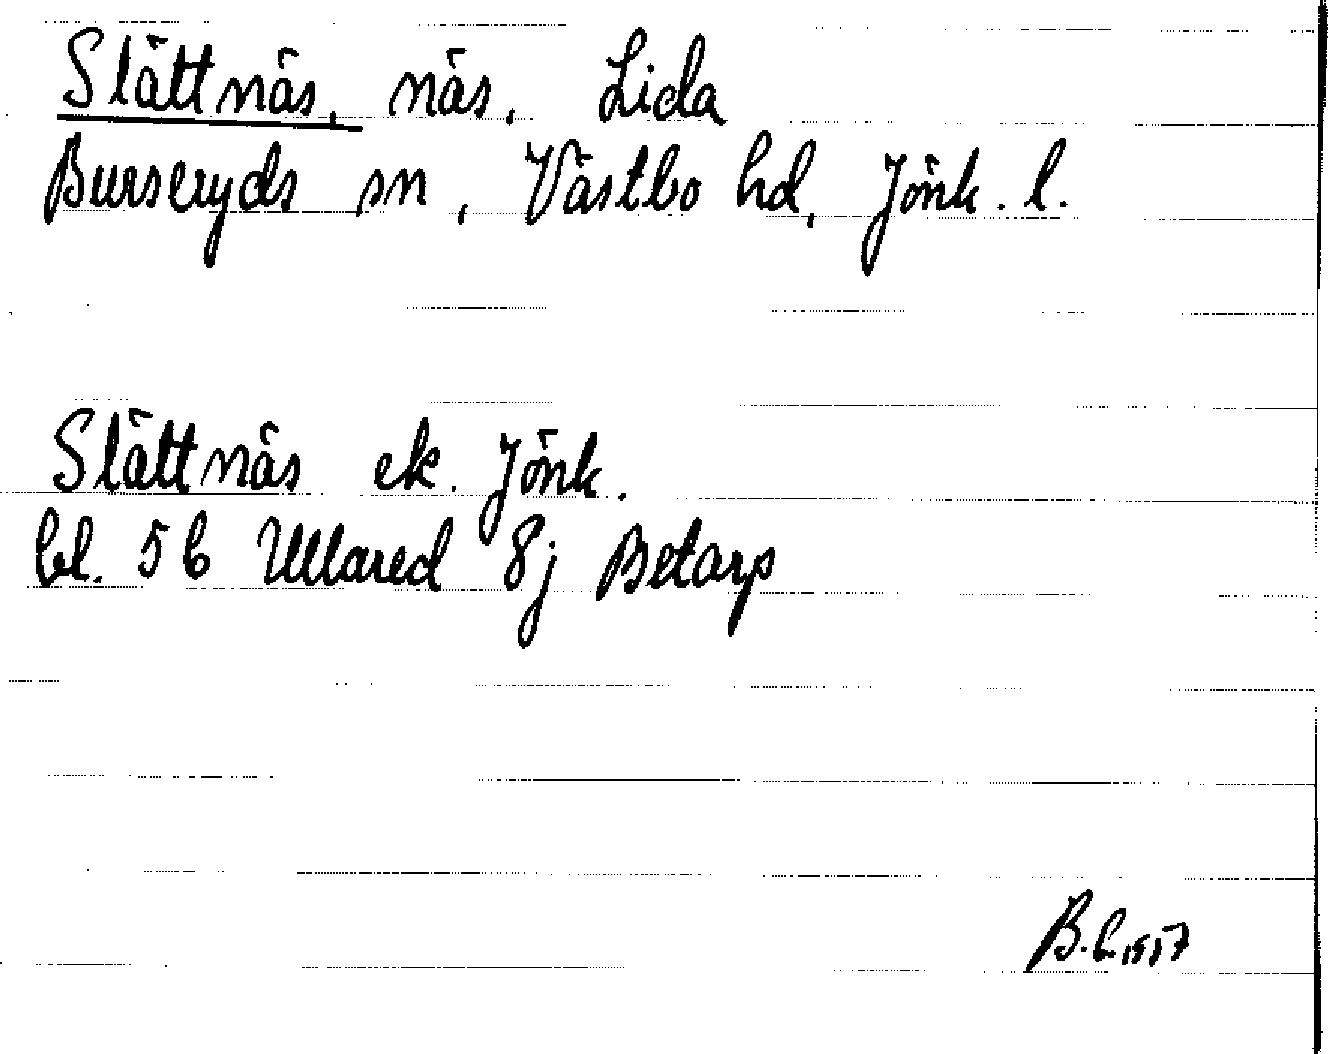 Slättnäs, näs, Lida
Burseryds sn, Västbo hd, Jönk. l.
Slättnäs ek. Jönk.
bl. 5b Ullared 8j Betarp
1957